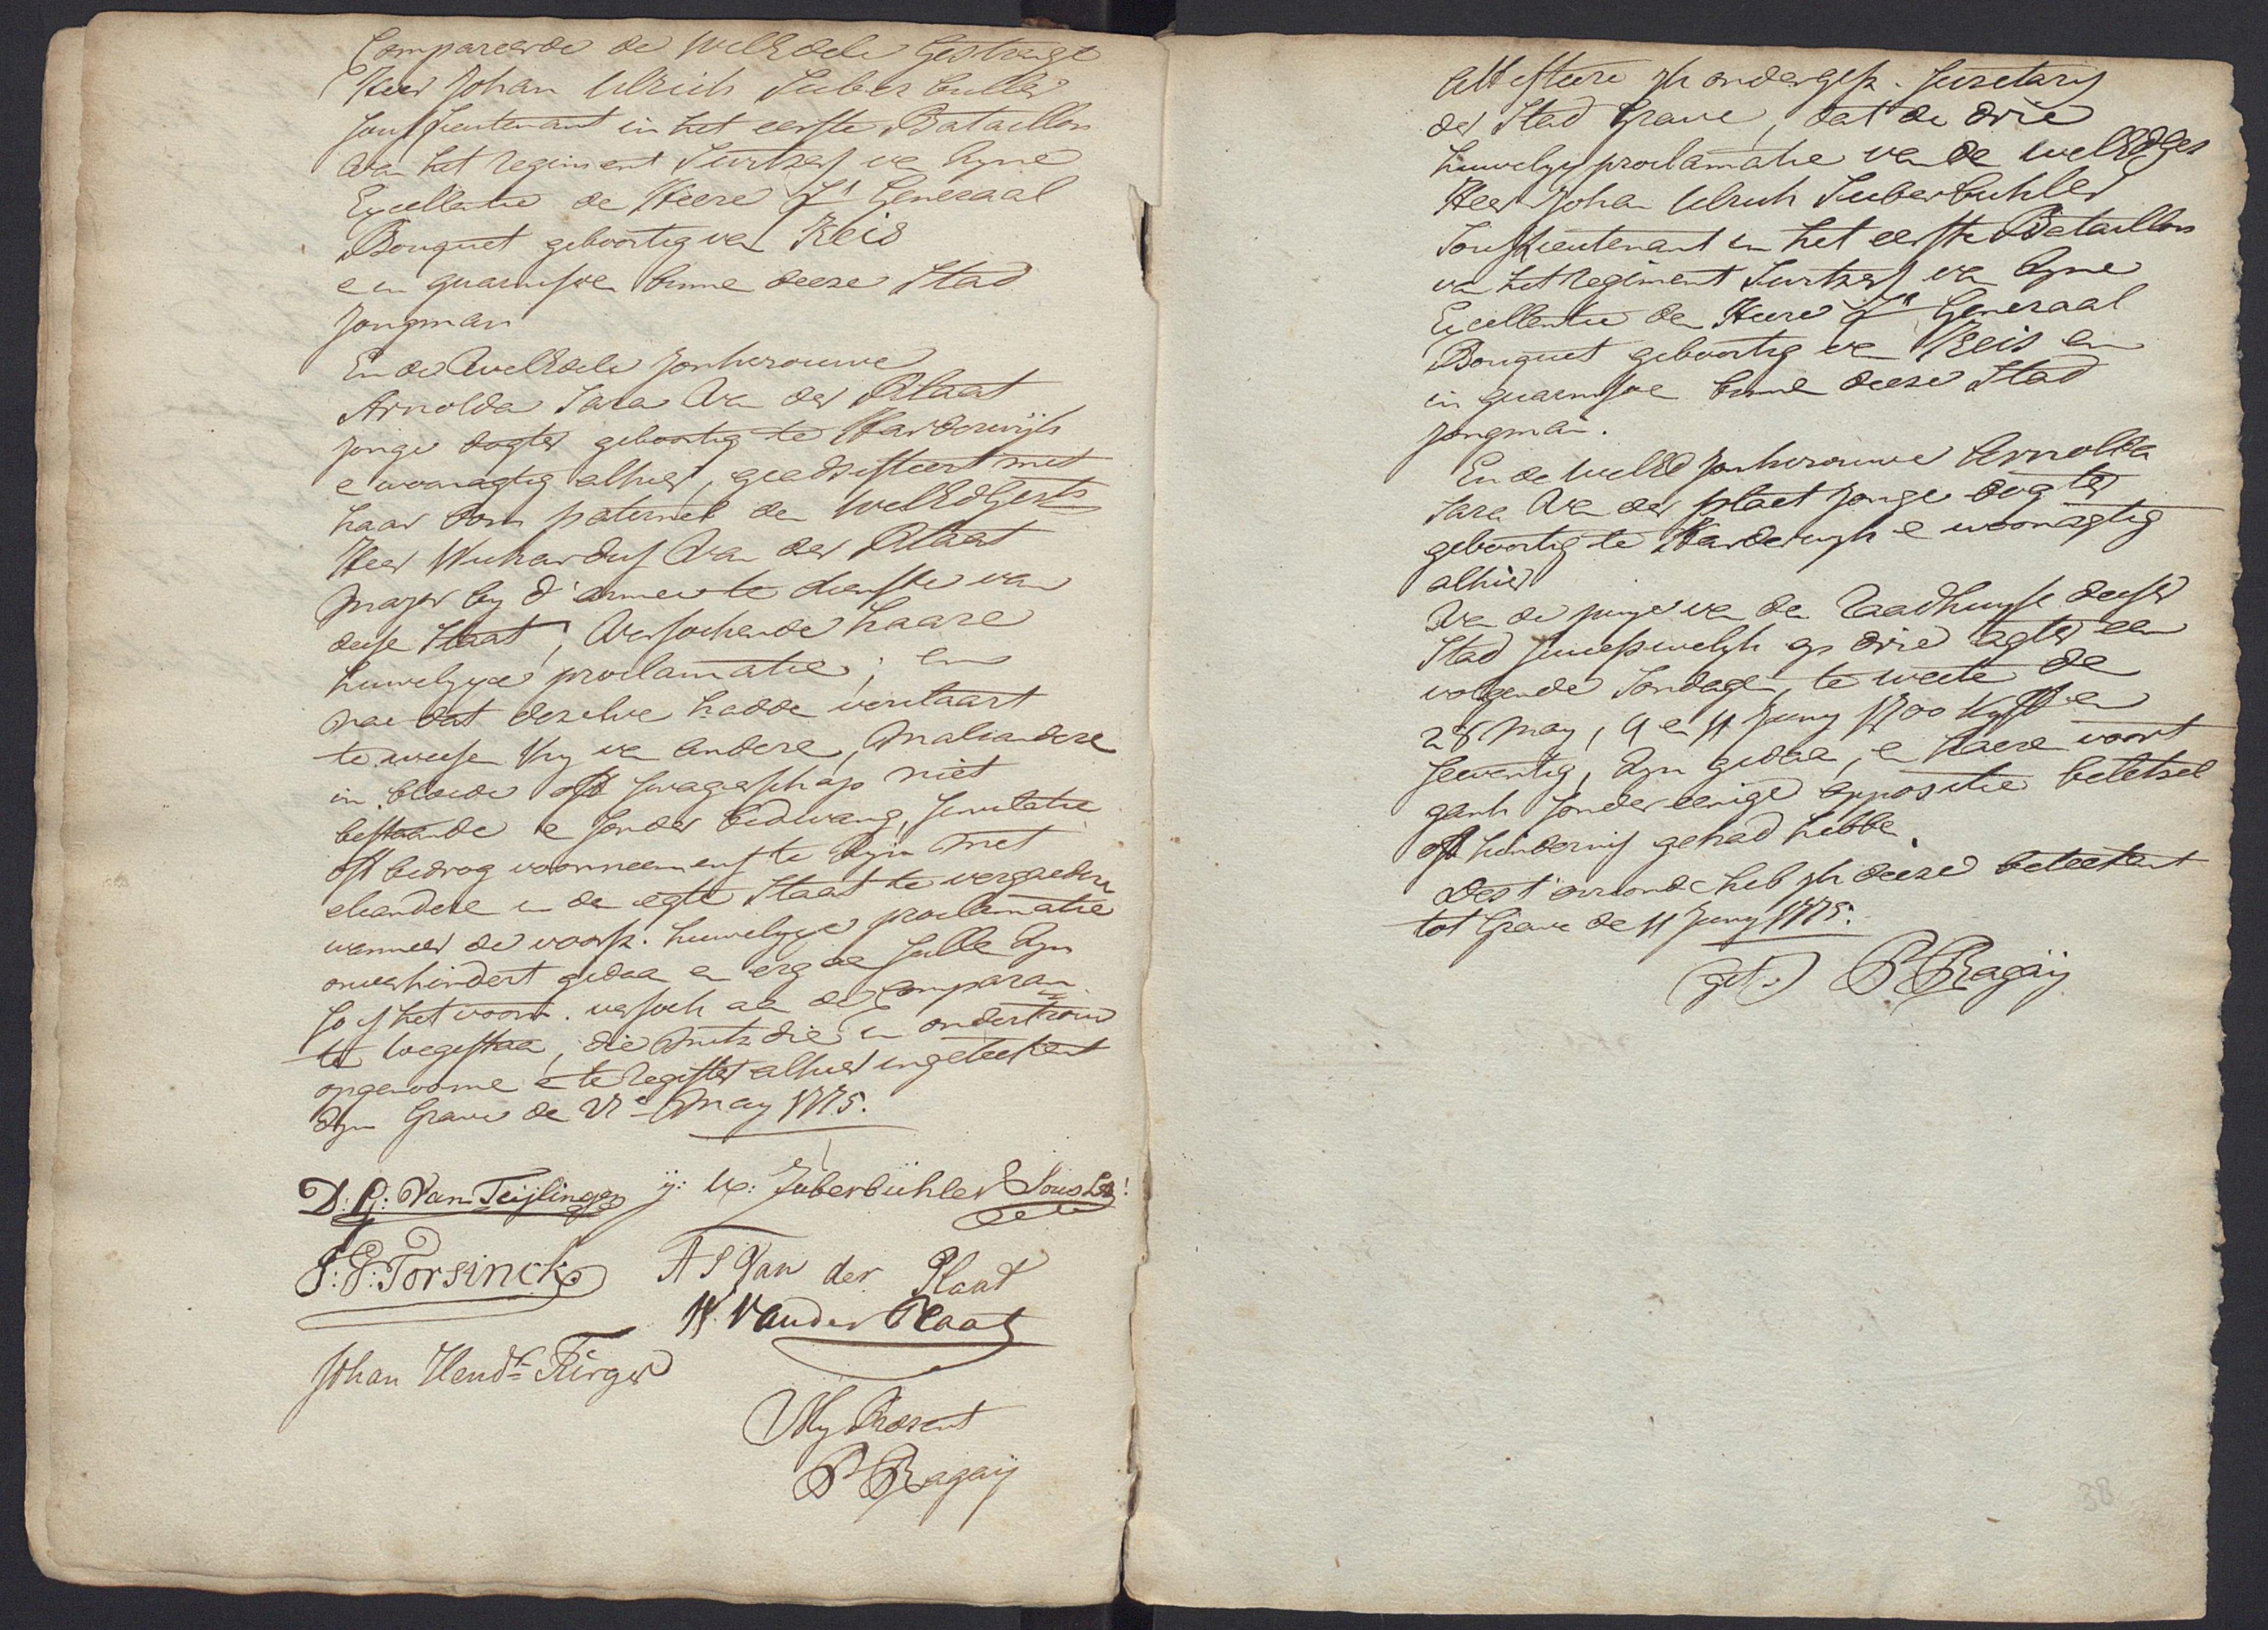 Compareerde de WelEdele Gestrenge
Heer Johan Ulrich Suberbuller
sous Lieutenant in het eerste Bataillon
van het regiment Switzers va Zyne
Excellentie de Heere Lt Generaal
Bouquet geboortig va Reis
e in guarnisoe binne deese Stad
Jongman
En de WelEdele Jonkvrouwe
Arnolda Sara Va der Plaat
jonge dogter geboortig te Harderwijk
e woonagtig alhier, geadsisteert met
haar Oom paternel de WelEdGestr
Heer Wichardus Va der Plaat
Major by d'armee te dienste van
dese Staat, Versoekende haare
huwelyxe proclamatie; en
nae dat deselve hadde verclaart
te weese Vry va andere, Maliandere
in bloede oft swagerschap niet
bestaande e sonder bedwang, simulatie
oft bedrog voorneemens te Zyn met
elcandere in de egte Staat te vergaedere
wanneer de voorsz. huwelyxe proclamatie
onverhindert gedaa en ergae sulle Zyn
so is het voorn. versoek aa de Comparan
te toegestaa, die mits die in ondertrouw
opgenoome e te register alhier ingeteekent
Zyn Grave de 27e May 1775.
D: G: Van Teijlingen
ÿ: Ul: Zuberbühler Sous Lt:
J: G: Torsinck
A S Van der Plaat
W. Vander Plaat
Johan Hendk Rürger
My Present
P Ragaÿ
Attesteere ik ondergesz. Secretary
der Stad Grave, dat de drie
huwelyx proclamatie va de WelEdGes
Heer Joha Ulrich Suberbuhler
Sous Lieutenant in het eerste Bataillon
va het regiment Switzers va Zyne
Excellentie den Heere Lt Generaal
Bouquet geboortig va Reis en
in guarnisoe binne deese Stad
jongman.
En de WelEd Jonkvrouwe Arnolda
Sara Va der plaet jonge dogter
geboortig te Harderwyk e woonagtig
alhier
Va de puye va de Raadhuyse deeser
Stad successivelyk op drie agter een
volgende Sondagen, te weete de
28 May, 4 e 11 Juny 1700 Vyff en
seeventig, Zyn gedaa, e haere voort
gank sonder eenige oppositie beletsel
oft hindernis gehad hebbe.
Des t' oirconde heb ik deese beteekent
tot Grave de 11 Juny 1775.
(get.) P Ragaÿ
38